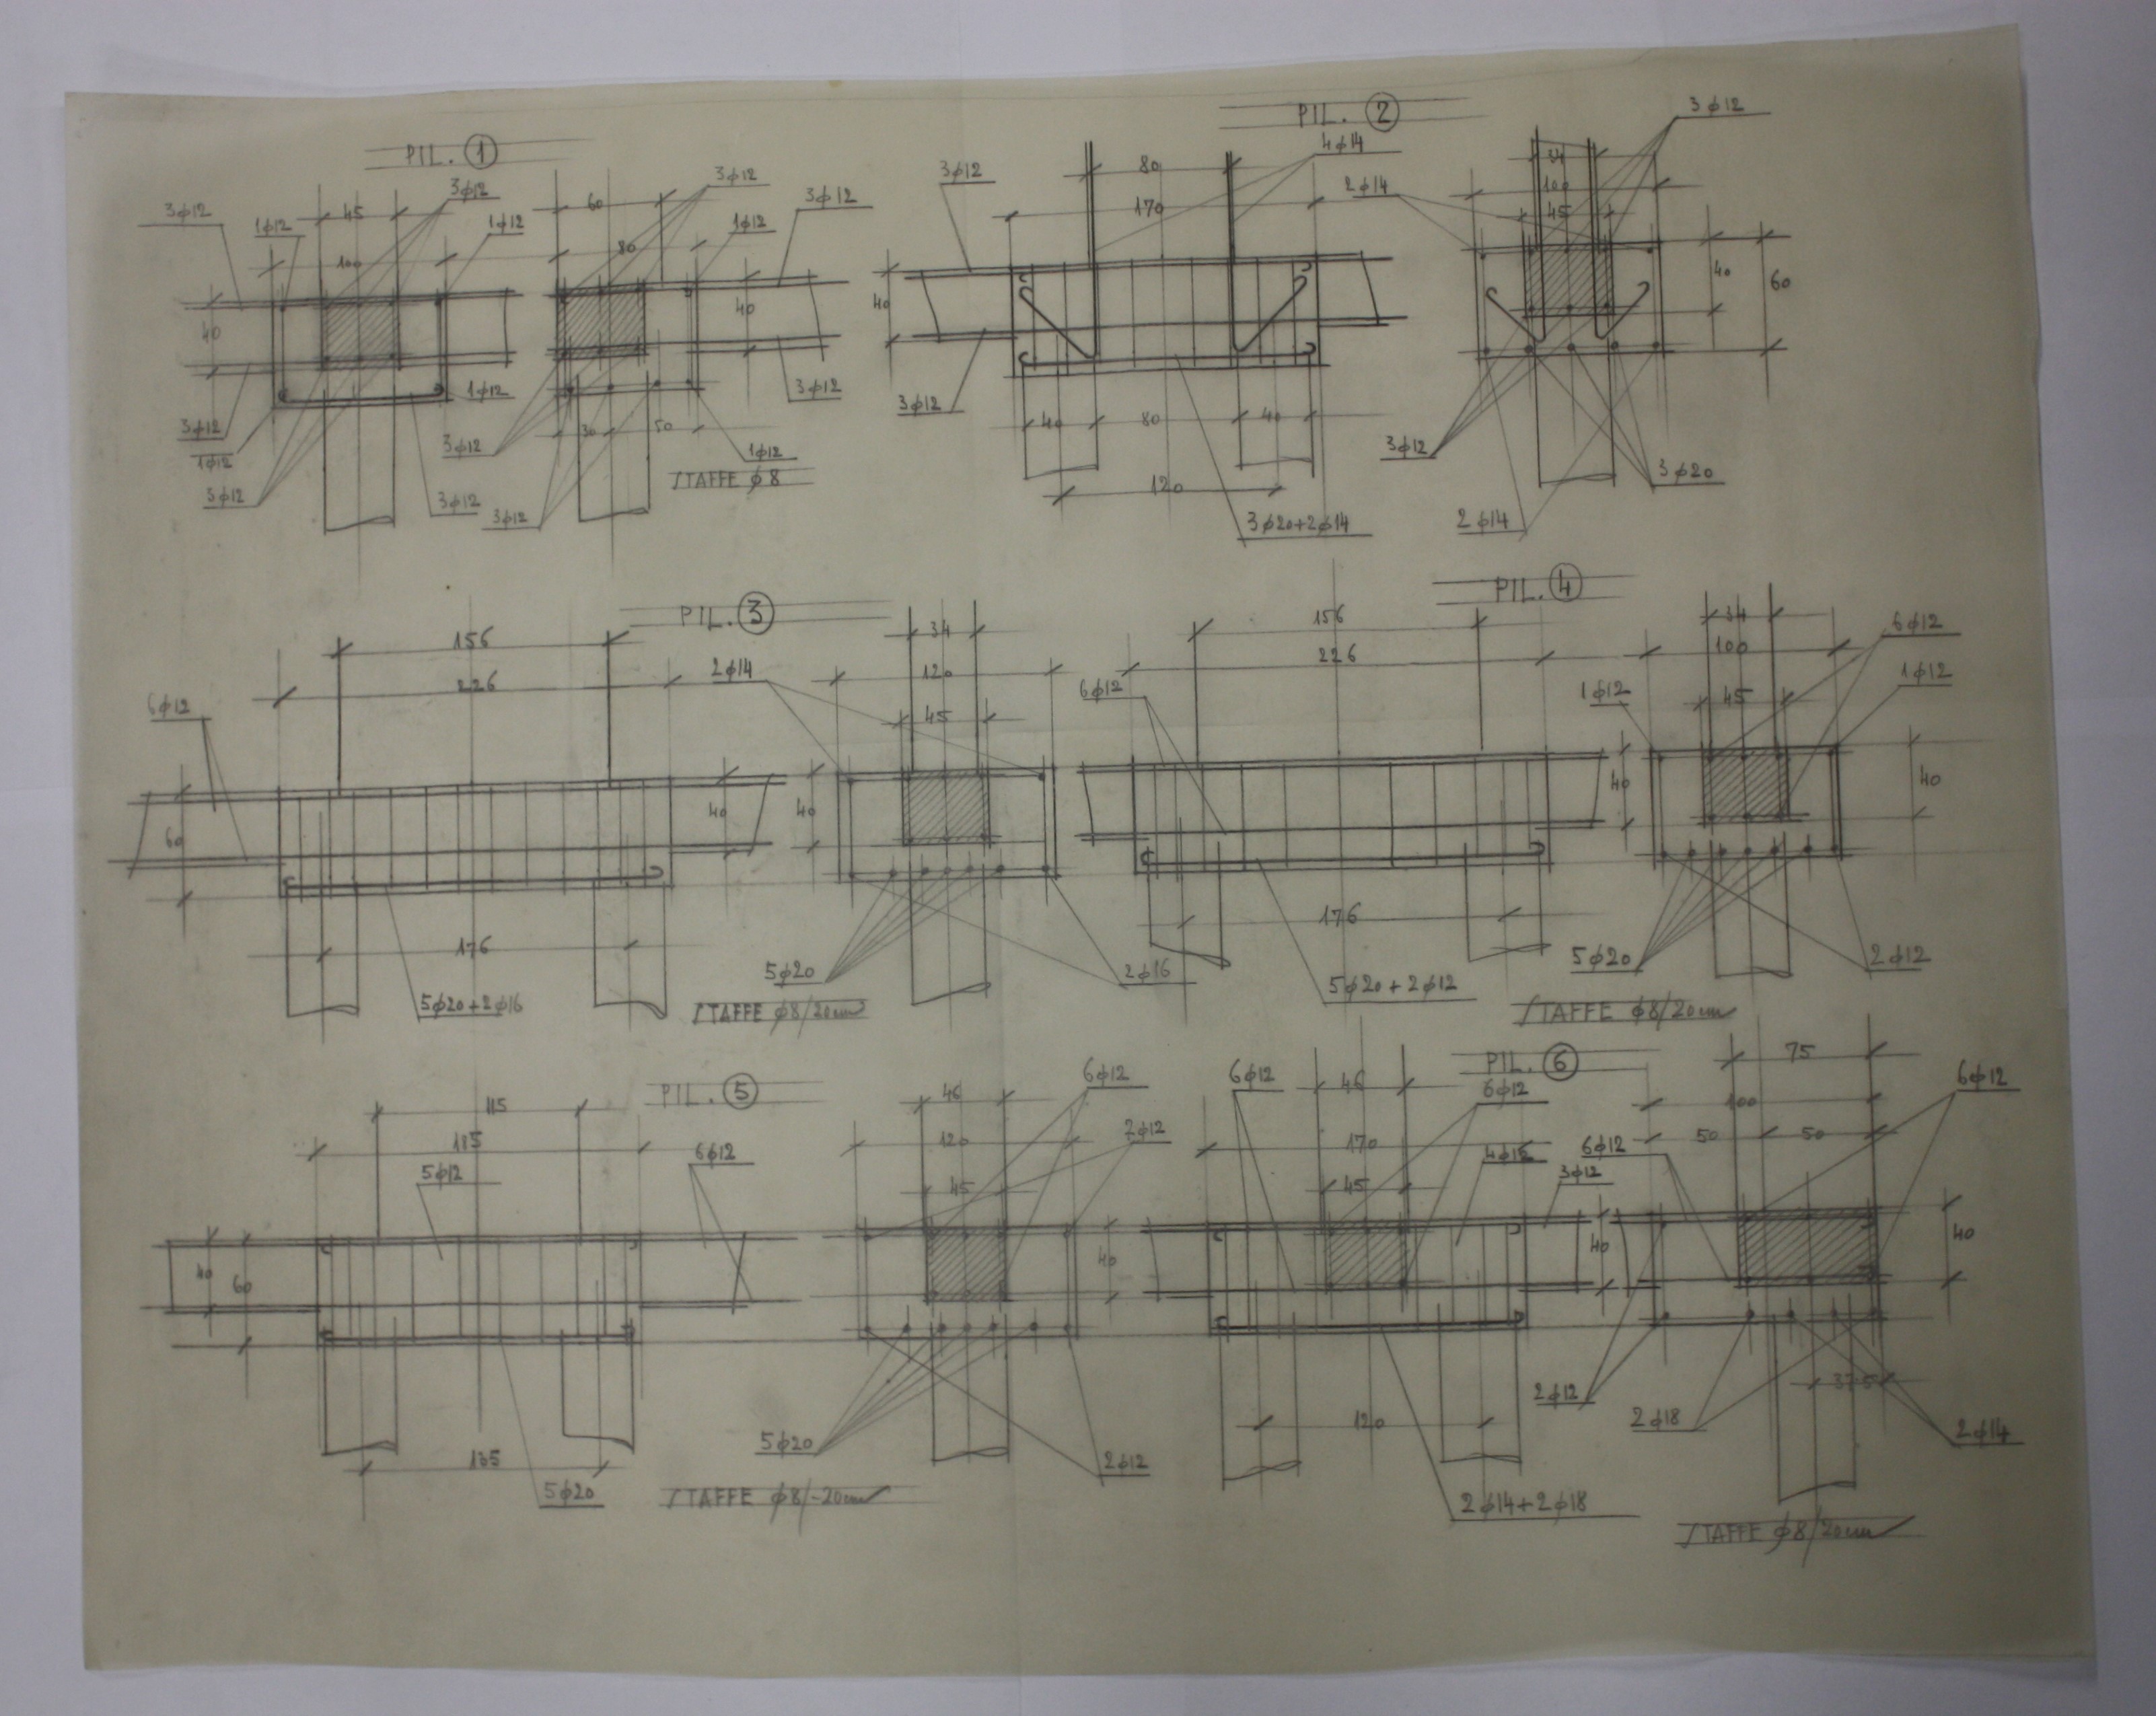 PIL. 1
3φ12
1φ12
45
3φ12
1φ12
100
40
3φ12
1φ12
3φ12
1φ12
3φ12
60
3φ12
1φ12
3φ12
80
40
3φ12
3φ12
30
50
1φ12
3φ12
STAFFE φ8
PIL. 2
3φ12
80
4φ14
170
40
3φ12
40
80
40
120
3φ20+2φ14
3φ12
34
2φ14
100
45
40
60
3φ12
3φ20
2φ14
PIL. 3
156
226
6φ12
60
40
176
5φ20+2φ16
34
2φ14
120
45
40
5φ20
2φ16
STAFFE φ8/20cm
PIL. 4
156
226
6φ12
40
176
5φ20+2φ12
34
6φ12
100
1φ12
45
1φ12
40
5φ20
2φ12
STAFFE φ8/20cm
PIL. 5
115
185
5φ12
6φ12
40
60
135
5φ20
46
6φ12
120
2φ12
45
40
5φ20
2φ12
STAFFE φ8/-20cm
PIL. 6
6φ12
46
6φ12
170
4φ12
45
3φ12
40
120
2φ14+2φ18
75
6φ12
100
50
50
6φ12
40
37.5
2φ12
2φ18
2φ14
STAFFE φ8/20cm